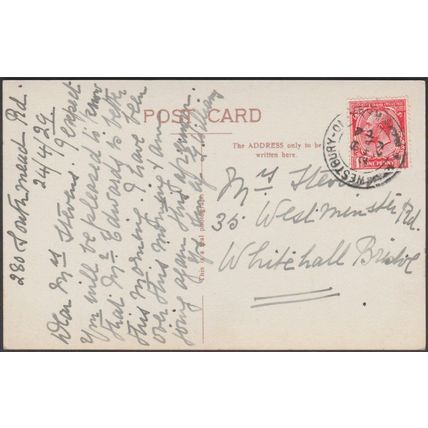 280 Southmead Rd.
24/4/29
Dear Mrs Stevens. I expect
you will be pleased to know
that Mr Edwards is better
this morning. I have been
over this morning & am
going again this afternoon
POST CARD
The ADDRESS only to be
written here.
Mrs Stevens
35 Westminster Rd.
Whitehall Bristol
WESTBURY-ON-
ONE PENNY